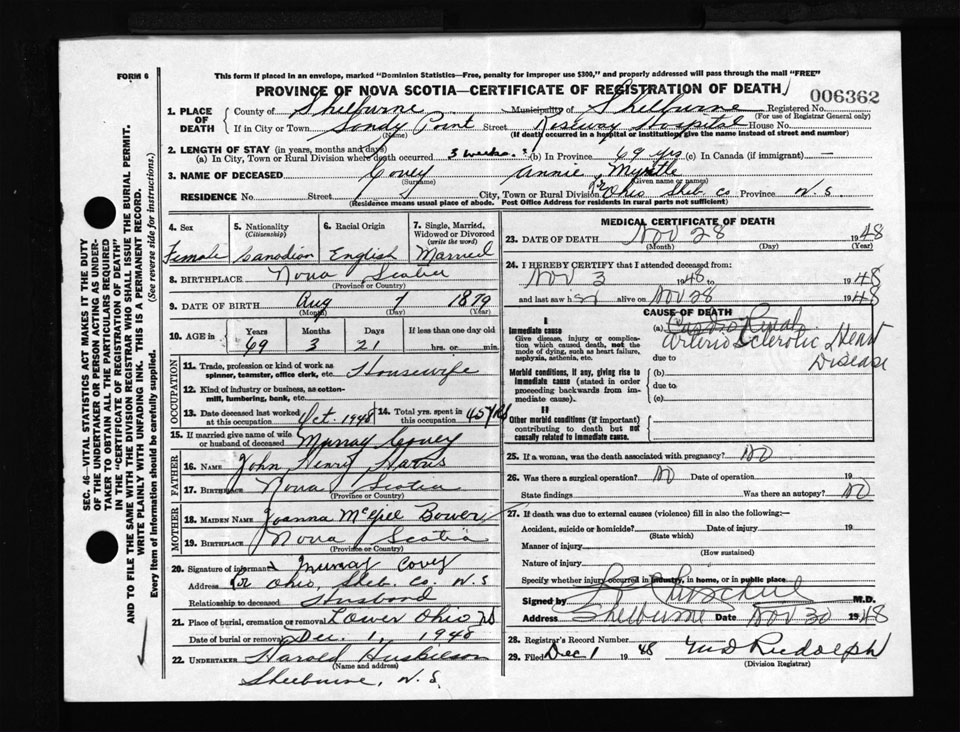 FORM 6
This form if placed in an envelope, marked "Dominion Statistics—Free, penalty for improper use $300," and properly addressed will pass through the mail "FREE"
PROVINCE OF NOVA SCOTIA—CERTIFICATE OF REGISTRATION OF DEATH
006362
1. PLACE OF DEATH County of Shelburne Municipality of Shelburne Registered No.
(For use of Registrar General only)
If in City or Town Sandy Point Street Roseway Hospital House No.
(Name) (If death occurred in a hospital or institution, give name instead of street and number)
2. LENGTH OF STAY (in years, months and days)
(a) In City, Town or Rural Division where death occurred 3 weeks (b) In Province 69 yrs (c) In Canada (if immigrant) —
3. NAME OF DECEASED Covey Annie Myrtle
(Surname) (Given name or names)
RESIDENCE No. Street City, Town or Rural Division Ohio Shel. Co Province N.S.
(Residence means usual place of abode. Post Office Address for residents in rural parts not sufficient)
4. Sex 5. Nationality (Citizenship) 6. Racial Origin 7. Single, Married, Widowed or Divorced (write the word)
Female Canadian English Married
8. BIRTHPLACE Nova Scotia
(Province or Country)
9. DATE OF BIRTH Aug 7 1879
(Month) (Day) (Year)
10. AGE in Years Months Days If less than one day old
69 3 21 hrs. or min.
OCCUPATION
11. Trade, profession or kind of work as spinner, teamster, office clerk, etc. Housewife
12. Kind of industry or business, as cotton-mill, lumbering, bank, etc.
13. Date deceased last worked at this occupation Oct. 1948 14. Total yrs. spent in this occupation 45 yrs
15. If married give name of wife or husband of deceased Murray Covey
FATHER
16. NAME John Henry Harris
17. BIRTHPLACE Nova Scotia
(Province or Country)
MOTHER
18. MAIDEN NAME Joanna McGill Bower
19. BIRTHPLACE Nova Scotia
(Province or Country)
20. Signature of informant Murray Covey
Address Ohio, Shelb. Co. N.S
Relationship to deceased Husband
21. Place of burial, cremation or removal Lower Ohio NS
Date of burial or removal Dec. 1, 1948
22. UNDERTAKER Harold Huskilson
(Name and address)
Shelburne, N.S.
MEDICAL CERTIFICATE OF DEATH
23. DATE OF DEATH Nov 28 1948
(Month) (Day) (Year)
24. I HEREBY CERTIFY that I attended deceased from:
Nov 3 1948 to 1948
and last saw h alive on Nov 28 1948
CAUSE OF DEATH
I
Immediate cause
Give disease, injury or complication which caused death, not the mode of dying, such as heart failure, asphyxia, asthenia, etc.
(a) Cardio Renal
Arterio Sclerotic Heart Disease
due to
Morbid conditions, if any, giving rise to immediate cause (stated in order proceeding backwards from immediate cause).
(b)
due to
(c)
II
Other morbid conditions (if important) contributing to death but not causally related to immediate cause.
25. If a woman, was the death associated with pregnancy? No
26. Was there a surgical operation? No Date of operation 19
State findings Was there an autopsy? No
27. If death was due to external causes (violence) fill in also the following:—
Accident, suicide or homicide? Date of injury 19
(State which)
Manner of injury
(How sustained)
Nature of injury
Specify whether injury occurred in industry, in home, or in public place
Signed by M.D.
Address Shelburne Date Nov 30 1948
28. Registrar's Record Number
29. Filed Dec 1 1948 Rudolph
(Division Registrar)
SEC. 46—VITAL STATISTICS ACT MAKES IT THE DUTY
OF THE UNDERTAKER OR PERSON ACTING AS UNDER-
TAKER TO OBTAIN ALL THE PARTICULARS REQUIRED
IN THE "CERTIFICATE OF REGISTRATION OF DEATH"
AND TO FILE THE SAME WITH THE DIVISION REGISTRAR WHO SHALL ISSUE THE BURIAL PERMIT.
WRITE PLAINLY WITH UNFADING INK. THIS IS A PERMANENT RECORD.
Every item of Information should be carefully supplied. (See reverse side for instructions.)